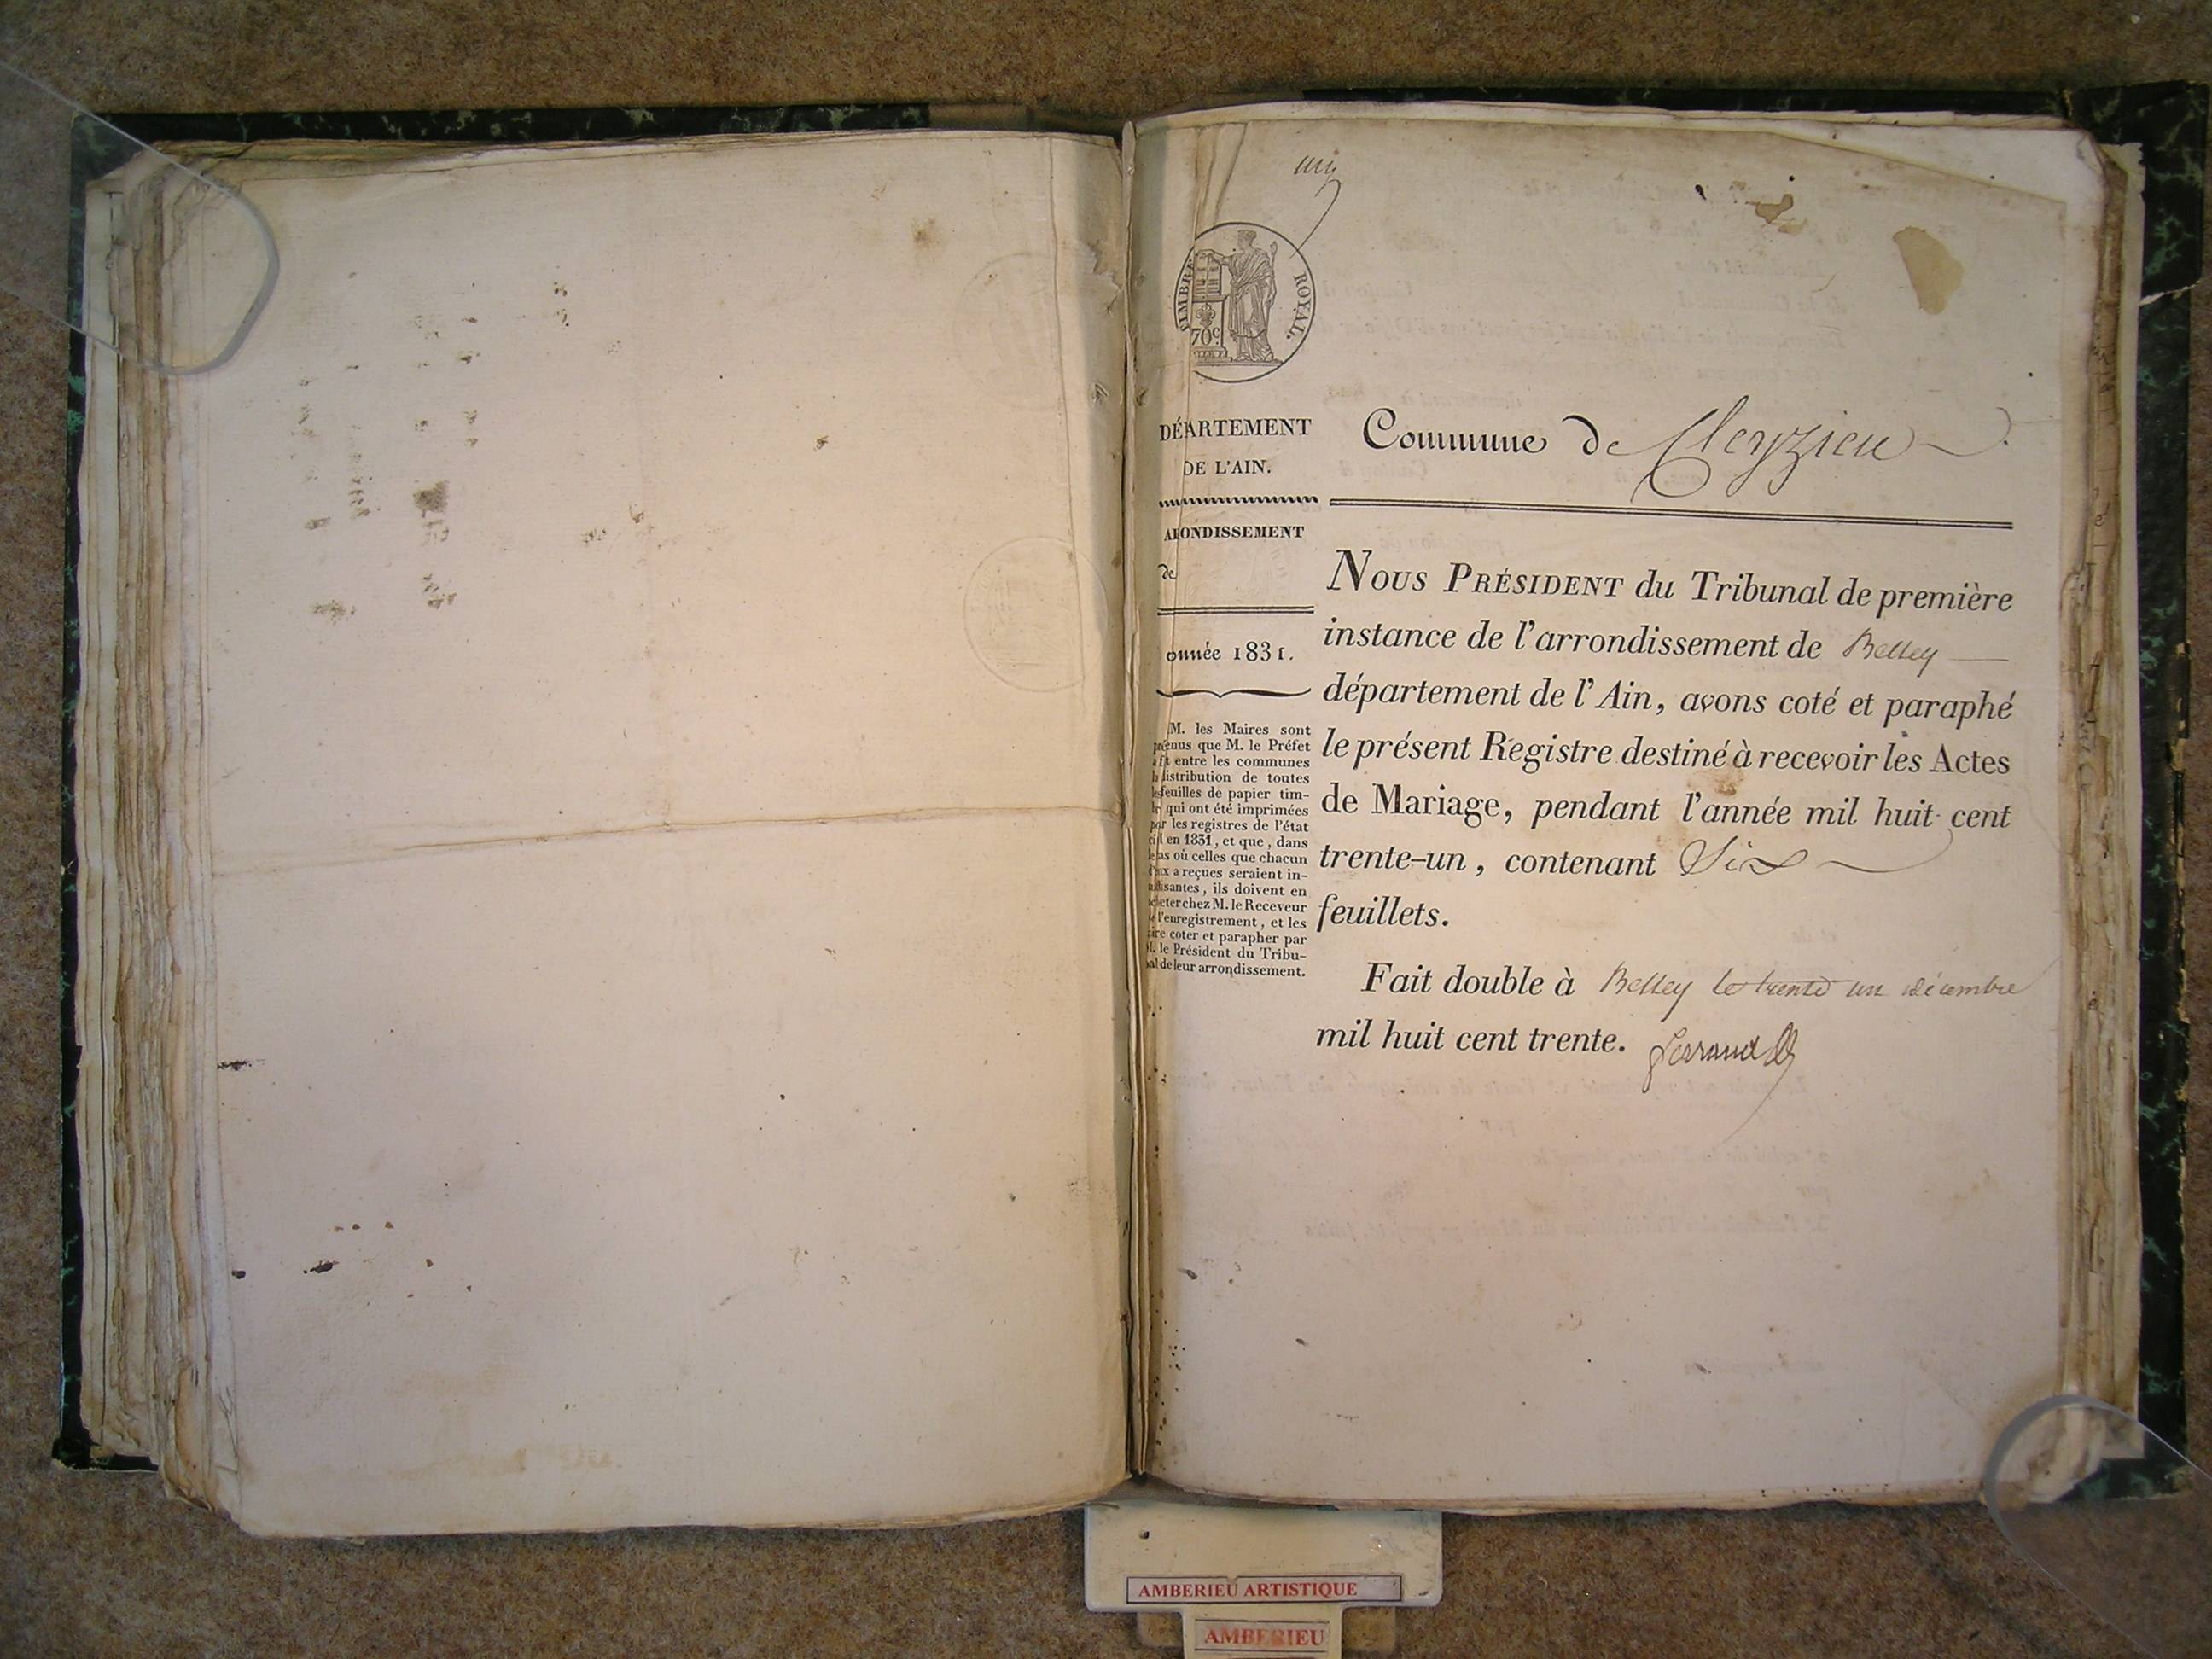 un
TIMBRE ROYAL.
70c.
DÉPARTEMENT
DE L'AIN.
ARONDISSEMENT
de
année 1831.
M. les Maires sont
prévenus que M. le Préfet
a fait entre les communes
la distribution de toutes
les feuilles de papier tim-
bré qui ont été imprimées
pour les registres de l'état
civil en 1831, et que, dans
le cas où celles que chacun
d'eux a reçues seraient in-
suffisantes, ils doivent en
acheter chez M. le Receveur
de l'enregistrement, et les
faire coter et parapher par
M. le Président du Tribu-
nal de leur arrondissement.
Commune de Cleyzieu
NOUS PRÉSIDENT du Tribunal de première
instance de l'arrondissement de Belley
département de l'Ain, avons coté et paraphé
le présent Registre destiné à recevoir les Actes
de Mariage, pendant l'année mil huit cent
trente-un, contenant Six
feuillets.
Fait double à Belley le trente un décembre
mil huit cent trente.
AMBERIEU ARTISTIQUE
AMBERIEU